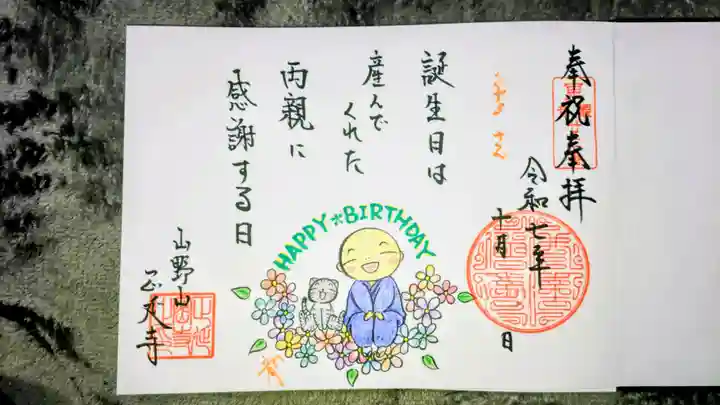 奉祝奉拝
令和七年
十月 日
誕生日は
産んで
くれた
両親に
感謝する日
HAPPY*BIRTHDAY
山野山